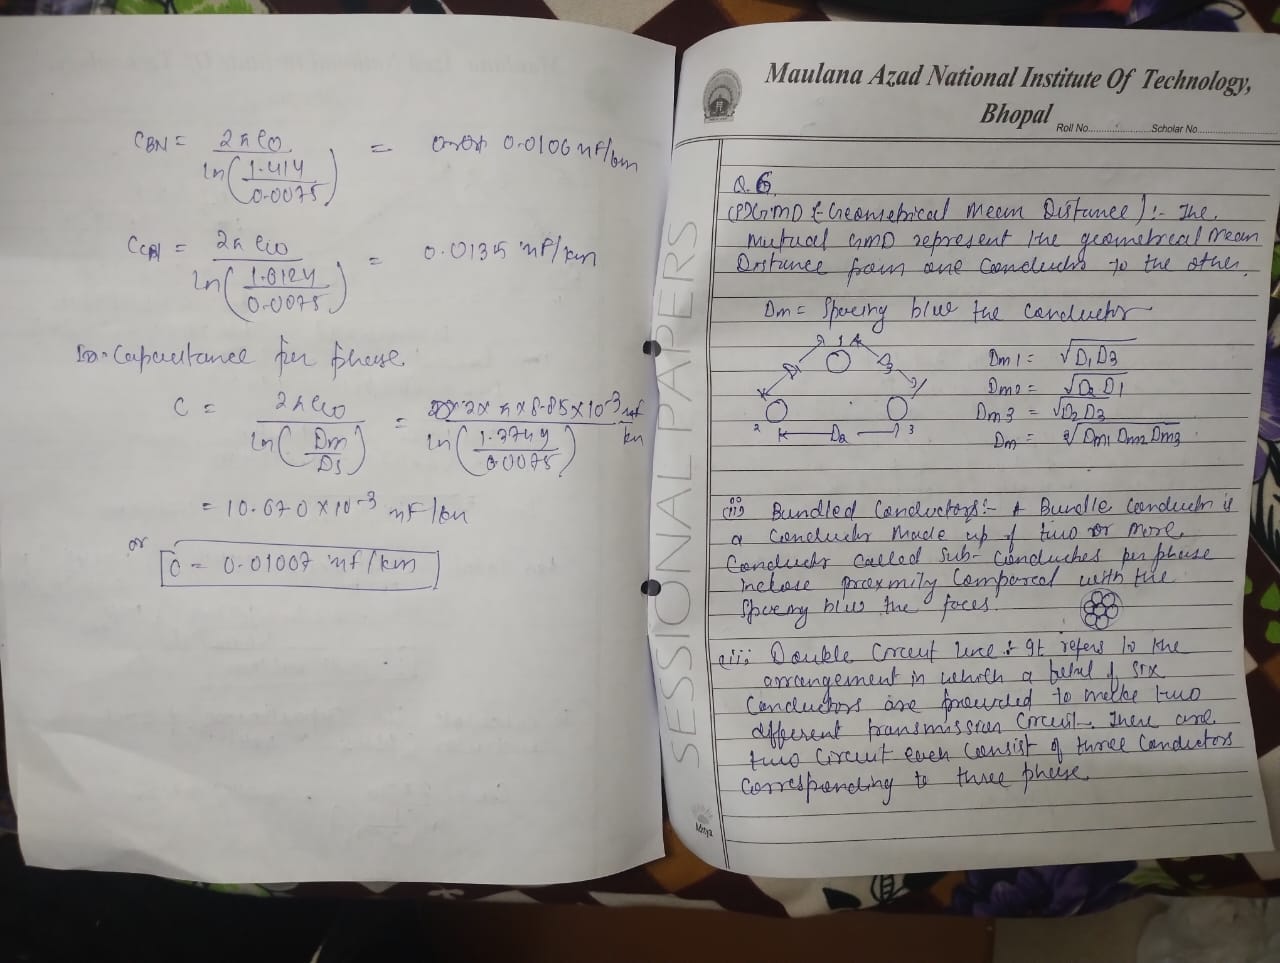 CBN = 2πε0 / ln(1.414 / 0.0075) = 0.0106 μF/km
CCN = 2πε0 / ln( / 0.0075) = μF/km
Capacitance per phase
C = 2πε0 / ln(Dm / Ds) = 2 × π × 8.85 × 10-3 μF / km / ln( / 0.0075)
= 10.670 × 10-3 μF/km
or
C = 0.01007 μF/km
SESSIONAL PAPERS
Aditya
Maulana Azad National Institute Of Technology,
Bhopal
Roll No.............. Scholar No..................
Q.6
GMD (Geometrical Mean Distance) :- The
Mutual GMD represent the geometrical Mean
Distance from one Conductor to the other.
Dm = Spacing b/w the conductor
1
D1 D3
2 D2 3
Dm1 = √D1 D3
Dm2 = √D2 D1
Dm3 = √D2 D3
Dm = ∛Dm1 Dm2 Dm3
(ii) Bundled Conductors :- A Bundle Conductor is
a Conductor Made up of two or more
Conductor called Sub-Conductors per phase
in close proximity Compared with the
Spacing b/w the
iii Double Circuit line :- It refers to the
arrangement in which a total of six
Conductors are provided to make two
different transmission Circuit. There are
two Circuit each Consist of three Conductors
Corresponding to three phase